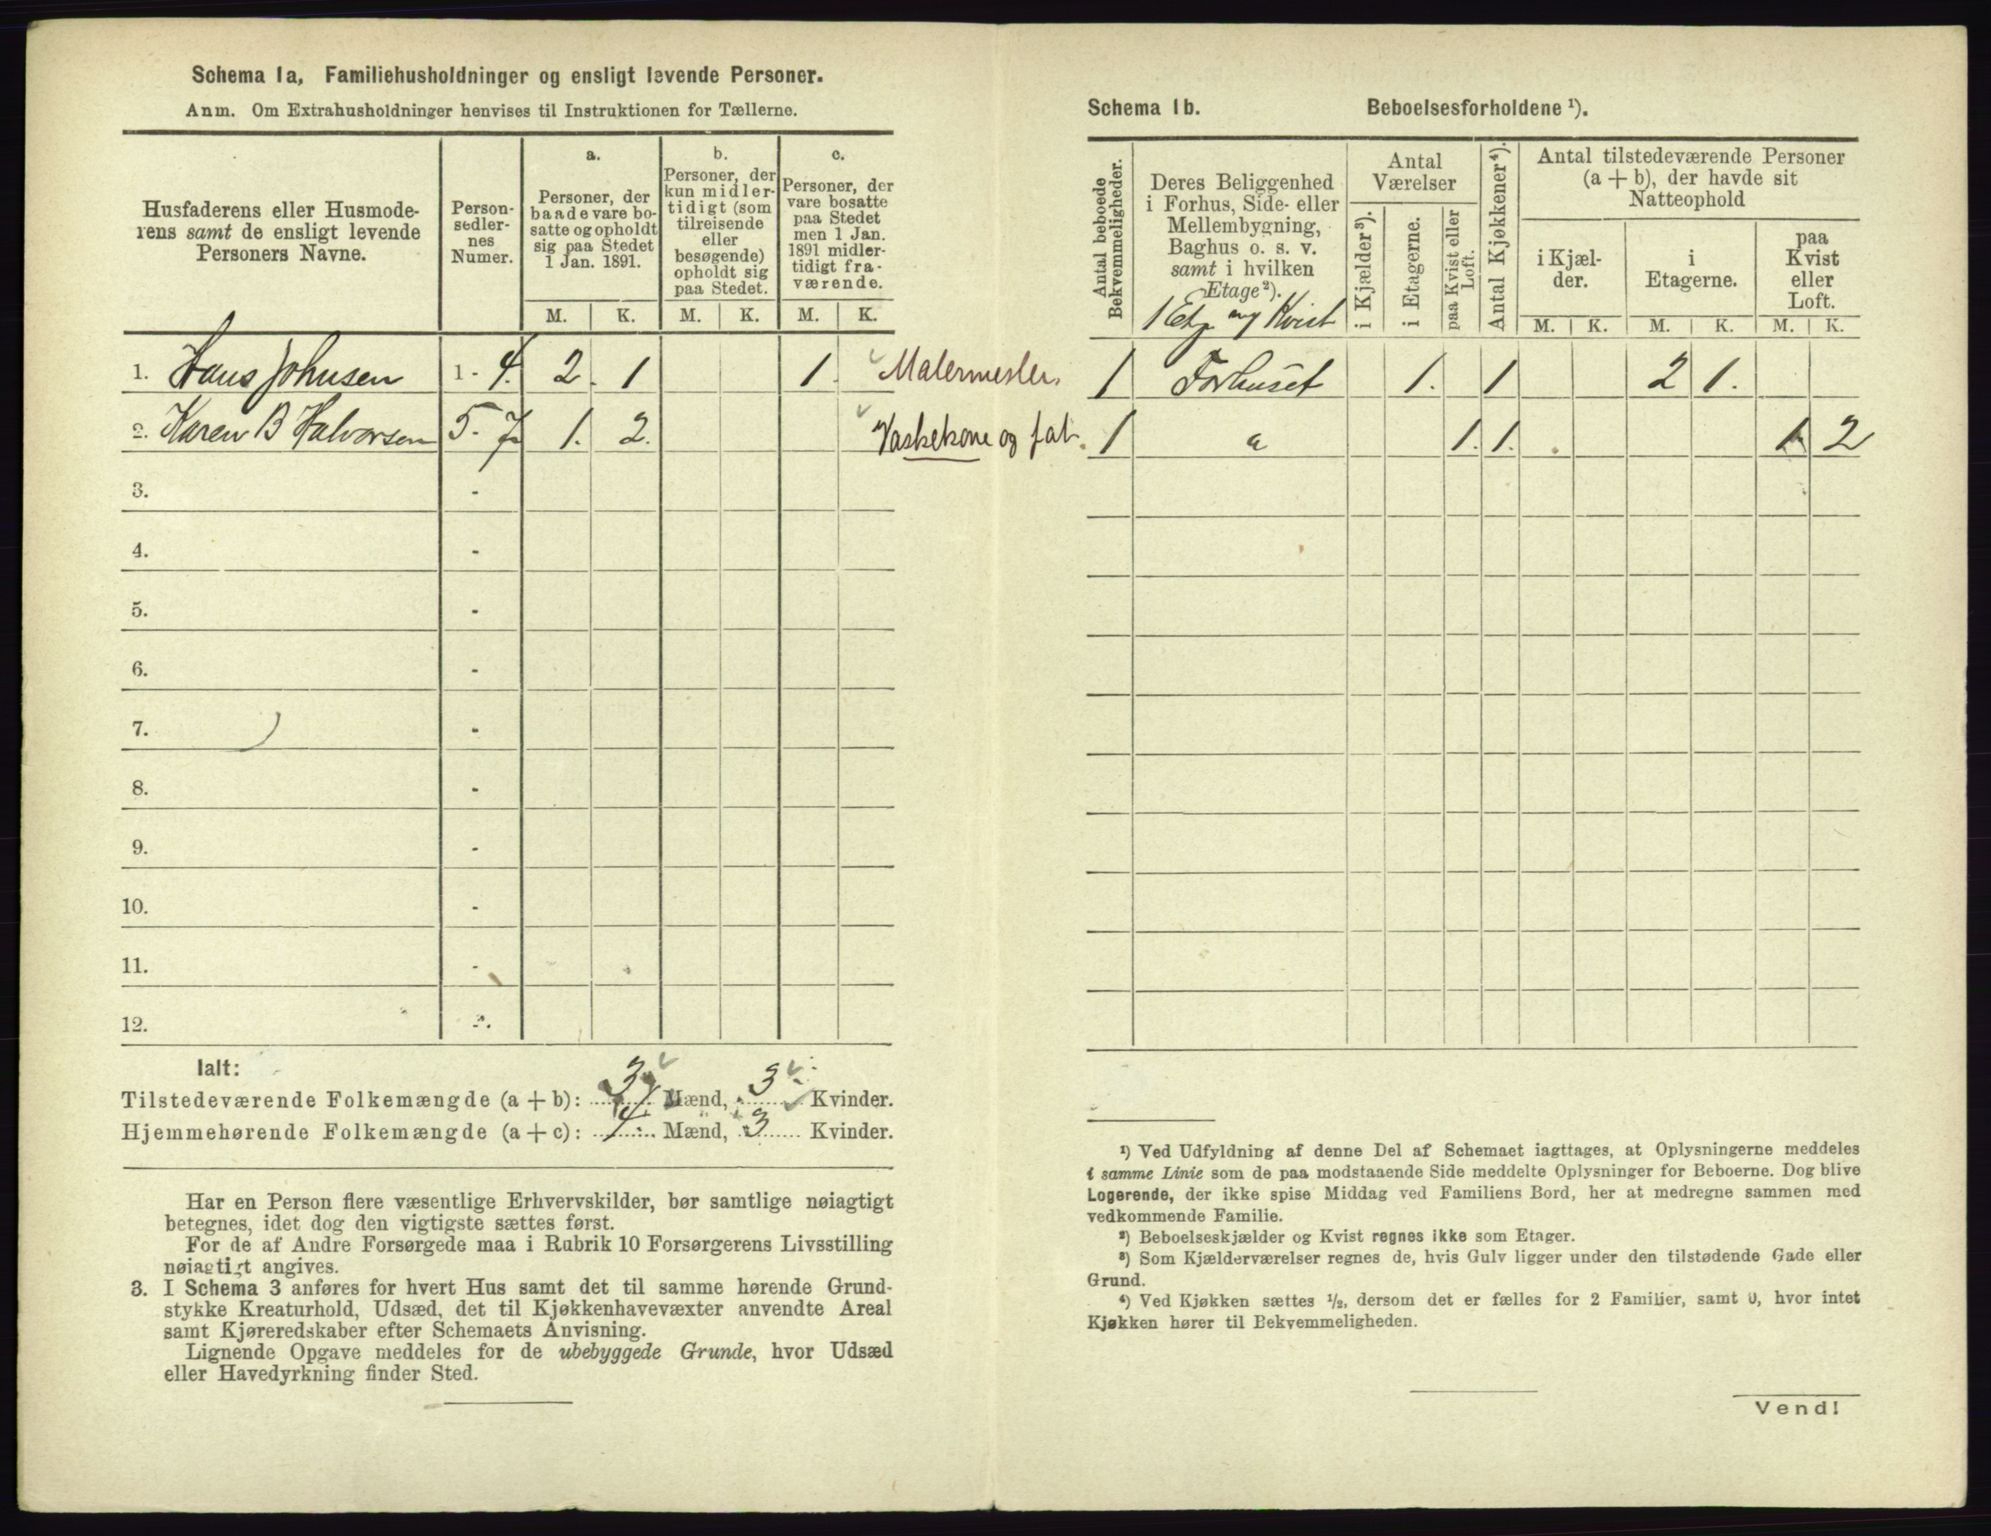 Schema 1a, Familiehusholdninger og ensligt levende Personer.
Anm. Om Extrahusholdninger henvises til Instruktionen for Tællerne.
Husfaderens eller Husmode-
rens samt de ensligt levende
Personers Navne.
Person-
sedler-
nes
Numer.
a.
Personer, der
baade vare bo-
satte og opholdt
sig paa Stedet
1 Jan. 1891.
b.
Personer, der
kun midler-
tidigt (som
tilreisende
eller
besøgende)
opholdt sig
paa Stedet.
c.
Personer, der
vare bosatte
paa Stedet
men 1 Jan.
1891 midler-
tidigt fra-
værende.
M. K. M. K. M. K.
1. Hans Johnsen 1 - 4. 2. 1 1. Malermester
2. Karen B Halvorsen 5 - 7 1. 2. Vaskekone og fat.
3. -
4. -
5. -
6. -
7. -
8. -
9. -
10. -
11. -
12. -
Ialt:
Tilstedeværende Folkemængde (a + b): 3 Mænd, 3 Kvinder.
Hjemmehørende Folkemængde (a + c): 4 Mænd, 3 Kvinder.
Har en Person flere væsentlige Erhvervskilder, bør samtlige nøiagtigt
betegnes, idet dog den vigtigste sættes først.
For de af Andre Forsørgede maa i Rubrik 10 Forsørgerens Livsstilling
nøiagtigt angives.
3. I Schema 3 anføres for hvert Hus samt det til samme hørende Grund-
stykke Kreaturhold, Udsæd, det til Kjøkkenhavevæxter anvendte Areal
samt Kjøreredskaber efter Schemaets Anvisning.
Lignende Opgave meddeles for de ubebyggede Grunde, hvor Udsæd
eller Havedyrkning finder Sted.
Schema 1b. Beboelsesforholdene ¹).
Antal beboede
Bekvemmeligheder.
Deres Beliggenhed
i Forhus, Side- eller
Mellembygning,
Baghus o. s. v.
samt i hvilken
Etage ²).
1 Etg og Kvist
Antal
Værelser
i Kjælder ³).
i Etagerne.
paa Kvist eller
Loft.
Antal Kjøkkener ⁴).
Antal tilstedeværende Personer
(a + b), der havde sit
Natteophold
i Kjæl-
der.
i
Etagerne.
paa
Kvist
eller
Loft.
M. K. M. K. M. K.
1 Forhuset 1. 1 2 1.
1 1. 1. 1 2
¹) Ved Udfyldning af denne Del af Schemaet iagttages, at Oplysningerne meddeles
i samme Linie som de paa modstaaende Side meddelte Oplysninger for Beboerne. Dog blive
Logerende, der ikke spise Middag ved Familiens Bord, her at medregne sammen med
vedkommende Familie.
²) Beboelseskjælder og Kvist regnes ikke som Etager.
³) Som Kjælderværelser regnes de, hvis Gulv ligger under den tilstødende Gade eller
Grund.
⁴) Ved Kjøkken sættes ½, dersom det er fælles for 2 Familier, samt 0, hvor intet
Kjøkken hører til Bekvemmeligheden.
Vend!